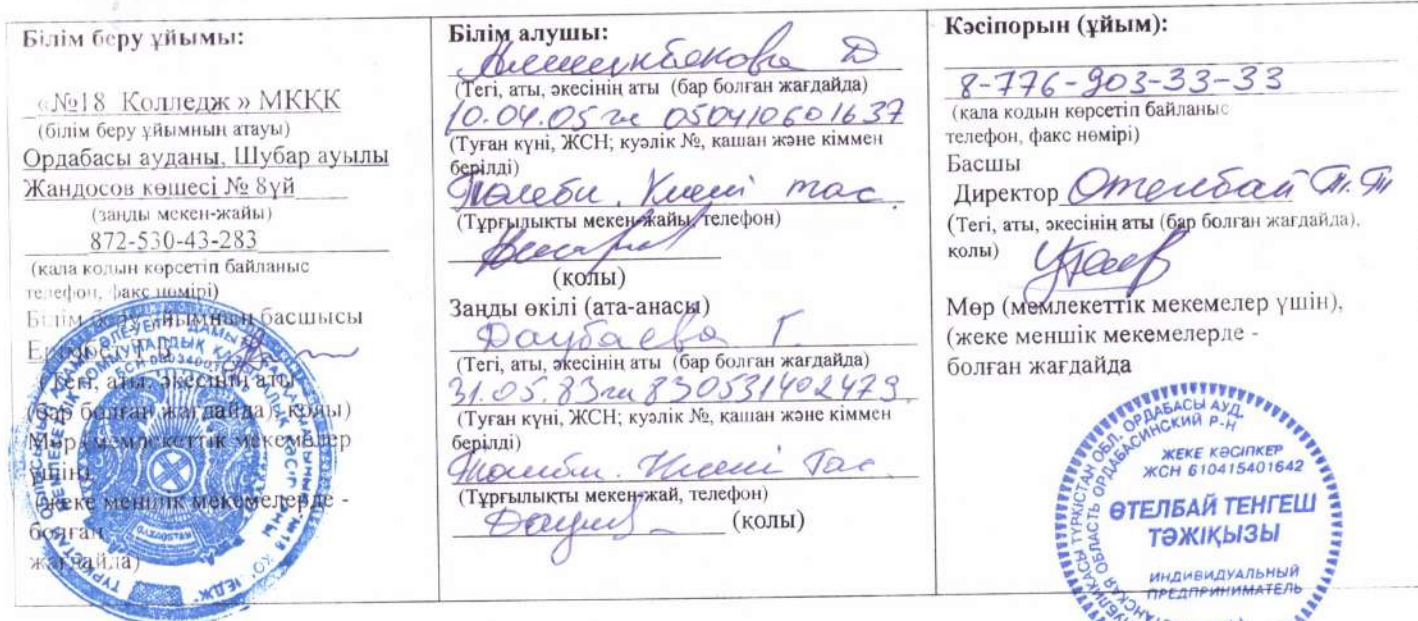 Білім беру ұйымы:
«№18 Колледж » МКҚК
(білім беру ұйымның атауы)
Ордабасы ауданы, Шубар ауылы
Жандосов көшесі № 8үй
(заңды мекен-жайы)
872-530-43-283
(қала кодын көрсетіп байланыс
телефон, факс нөмірі)
Білім беру ұйымның басшысы
(Тегі, аты, әкесінің аты
(бар болған жағдайда), қолы)
Мөр (мемлекеттік мекемелер
үшін),
(жеке меншік мекемелерде -
болған
жағдайда)
Білім алушы:
Д
(Тегі, аты, әкесінің аты (бар болған жағдайда)
10.04.05 ж 050410601637
(Туған күні, ЖСН; куәлік №, қашан және кіммен
берілді)
тас.
(Тұрғылықты мекен-жайы, телефон)
(қолы)
Заңды өкілі (ата-анасы)
Даубаева Г.
(Тегі, аты, әкесінің аты (бар болған жағдайда)
31.05.83ж 830531402479.
(Туған күні, ЖСН; куәлік №, қашан және кіммен
берілді)
Тас.
(Тұрғылықты мекен-жай, телефон)
(қолы)
Кәсіпорын (ұйым):
8-776-903-33-33
(қала кодын көрсетіп байланыс
телефон, факс нөмірі)
Басшы
Директор Өтелбай Т.Т
(Тегі, аты, әкесінің аты (бар болған жағдайда),
қолы)
Мөр (мемлекеттік мекемелер үшін),
(жеке меншік мекемелерде -
болған жағдайда
ОРДАБАСЫ АУД.
ОРДАБАСИНСКИЙ Р-Н
ЖЕКЕ КӘСІПКЕР
ЖСН 610415401642
ӨТЕЛБАЙ ТЕНГЕШ
ТӘЖІҚЫЗЫ
ИНДИВИДУАЛЬНЫЙ
ПРЕДПРИНИМАТЕЛЬ